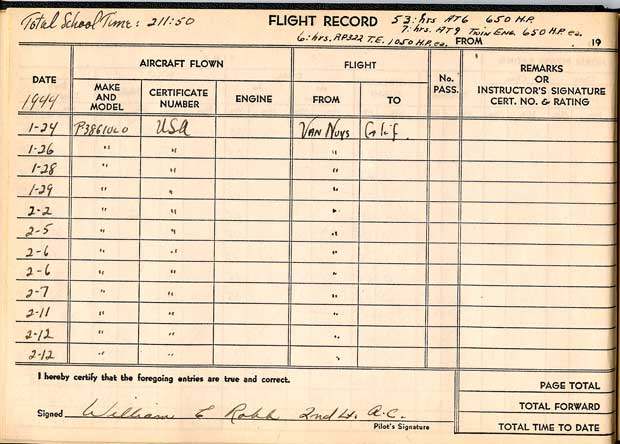 Total School Time: 211:50
FLIGHT RECORD
53:hrs AT6 650 H.P.
7:hrs. AT9 Twin Eng 650 H.P. ea.
6:hrs. RP322 T.E. 1050 H.P. ea.
FROM 19
DATE
1944
AIRCRAFT FLOWN
FLIGHT
No. PASS.
REMARKS
OR
INSTRUCTOR'S SIGNATURE
CERT. NO. & RATING
MAKE AND MODEL
CERTIFICATE NUMBER
ENGINE
FROM
TO
1-24 USA VAN NUYS Calif.
1-26 " " "
1-28 " " "
1-29 " " "
2-2 " " "
2-5 " " "
2-6 " " "
2-6 " " "
2-7 " " "
2-11 " " "
2-12 " " "
2-12 " " "
I hereby certify that the foregoing entries are true and correct.
Signed William E Robb 2nd Lt. A.C.
Pilot's Signature
PAGE TOTAL
TOTAL FORWARD
TOTAL TIME TO DATE